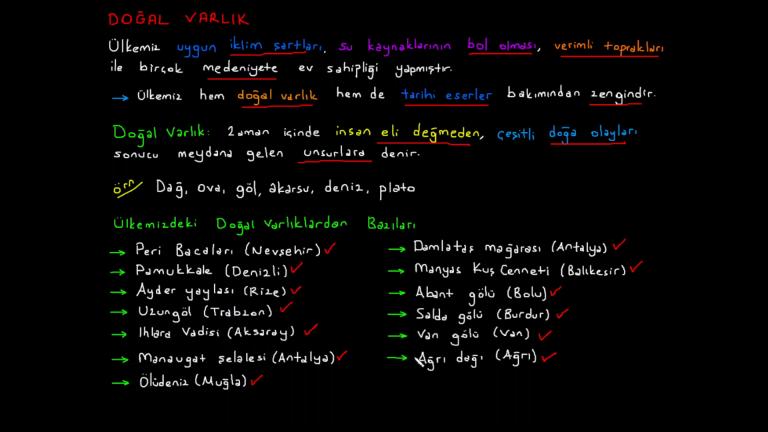 DOĞAL VARLIK
Ülkemiz uygun iklim şartları, su kaynaklarının bol olması, verimli toprakları
ile birçok medeniyete ev sahipliği yapmıştır.
→ Ülkemiz hem doğal varlık hem de tarihi eserler bakımından zengindir.
Doğal Varlık: Zaman içinde insan eli değmeden, çeşitli doğa olayları
sonucu meydana gelen unsurlara denir.
örn Dağ, ova, göl, akarsu, deniz, plato
Ülkemizdeki Doğal Varlıklardan Bazıları
→ Peri Bacaları (Nevşehir) ✓
→ Pamukkale (Denizli) ✓
→ Ayder yaylası (Rize) ✓
→ Uzungöl (Trabzon) ✓
→ Ihlara Vadisi (Aksaray) ✓
→ Manavgat şelalesi (Antalya) ✓
→ Ölüdeniz (Muğla) ✓
→ Damlataş mağarası (Antalya) ✓
→ Manyas Kuş Cenneti (Balıkesir) ✓
→ Abant gölü (Bolu) ✓
→ Salda gölü (Burdur) ✓
→ Van gölü (Van) ✓
→ Ağrı dağı (Ağrı) ✓